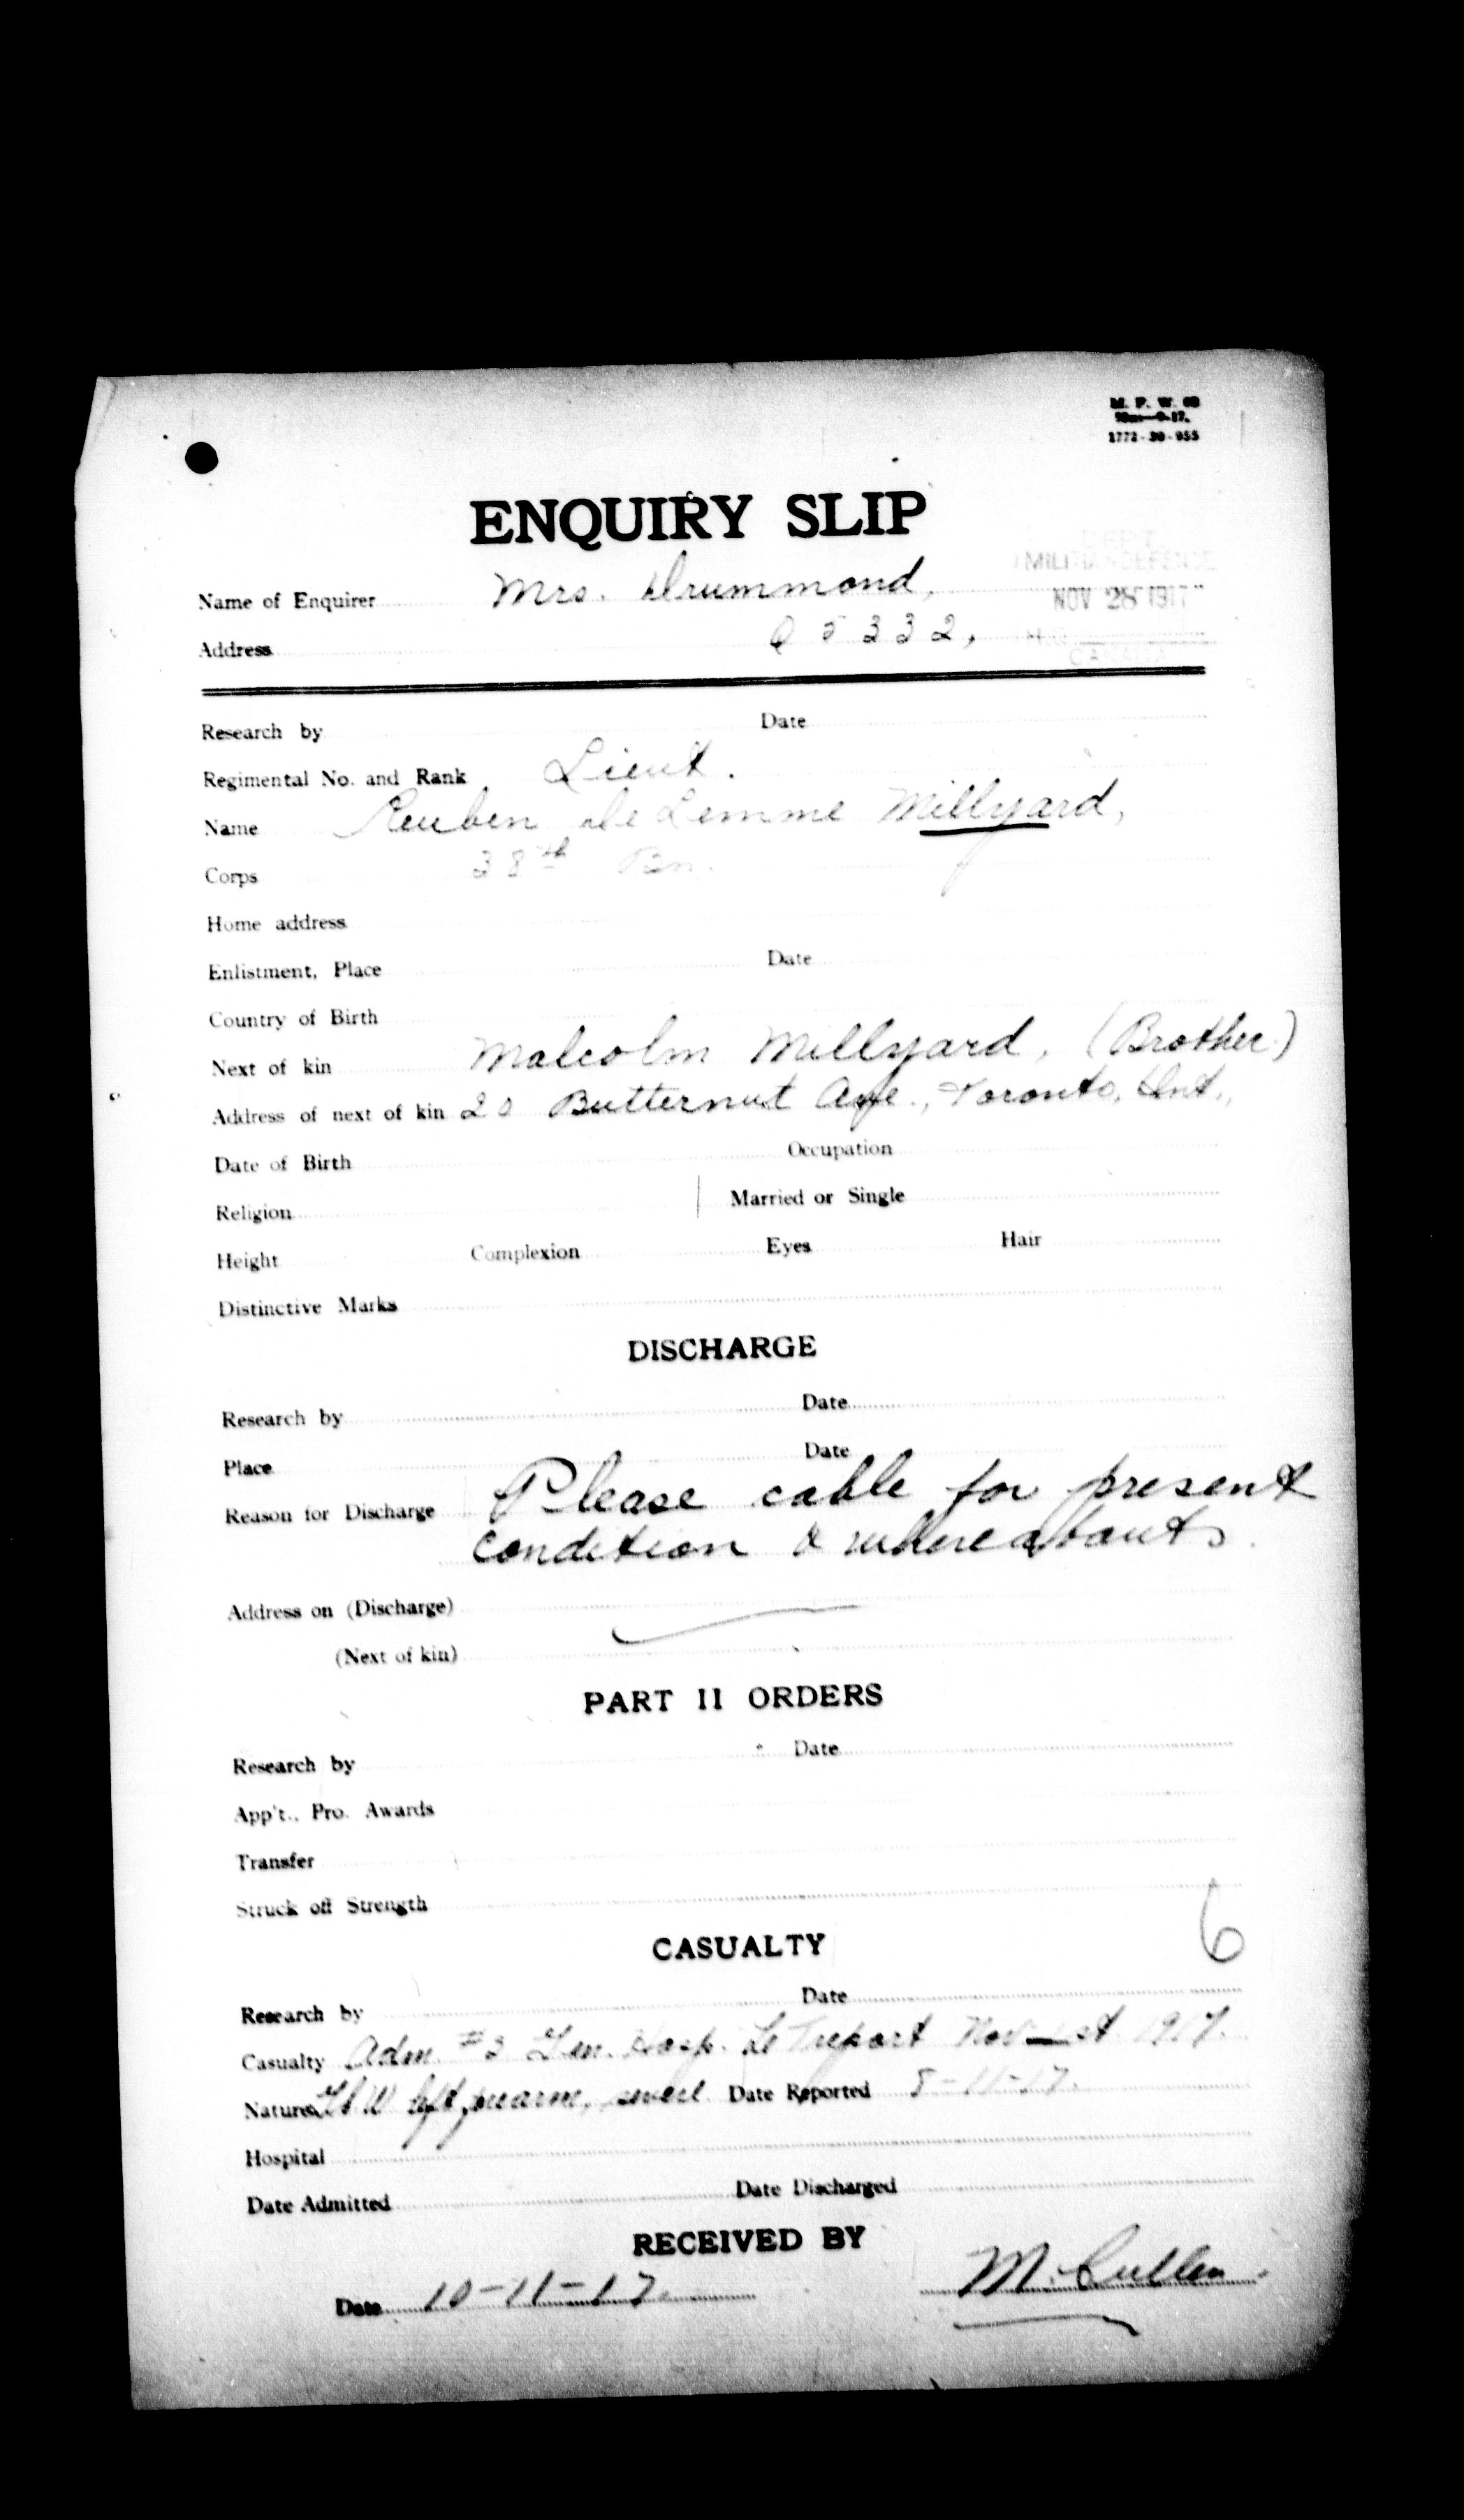 M. F. W. 60
50m—9-17.
1772-39-955
ENQUIRY SLIP
DEPT.
MILITIA & DEFENCE
NOV 28 1917
H.Q.
CANADA
Name of Enquirer Mrs. Drummond,
Address Q 5332,
Research by Date
Regimental No. and Rank Lieut.
Name Reuben de Lemme Millyard,
Corps 38th Bn.
Home address
Enlistment, Place Date
Country of Birth
Next of kin Malcolm Millyard, (Brother)
Address of next of kin 20 Butternut Ave., Toronto, Ont.,
Date of Birth Occupation
Religion Married or Single
Height Complexion Eyes Hair
Distinctive Marks
DISCHARGE
Research by Date
Place Date
Reason for Discharge Please cable for present
condition & whereabouts.
Address on (Discharge)
(Next of kin)
PART II ORDERS
Research by Date
App't., Pro. Awards
Transfer
Struck off Strength
6
CASUALTY
Research by Date
Casualty Adm. #3 Gen. Hosp. Le Treport Nov 1st 1917.
Nature left forearm, Date Reported 5-11-17.
Hospital
Date Admitted Date Discharged
RECEIVED BY
Date 10-11-17. M. Cullen.